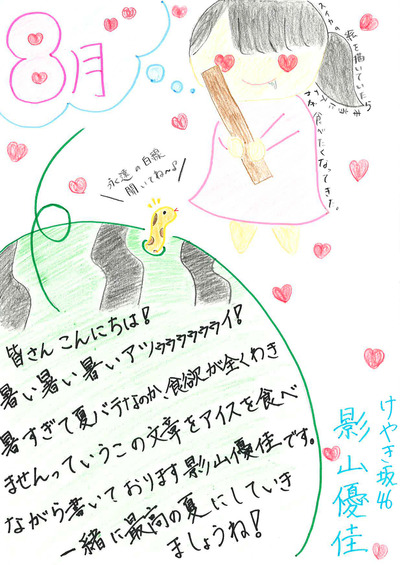 8月
スイカの絵を描いていたら
食べたくなってきた。
永遠の白線
聞いてね〜♪
皆さんこんにちは!
暑い暑い暑いアツゥゥゥゥゥゥイ!
暑すぎて夏バテなのか、食欲が全くわき
ませんっていうこの文章をアイスを食べ
ながら書いております影山優佳です。
一緒に最高の夏にしていき
ましょうね!
けやき坂46
影山優佳